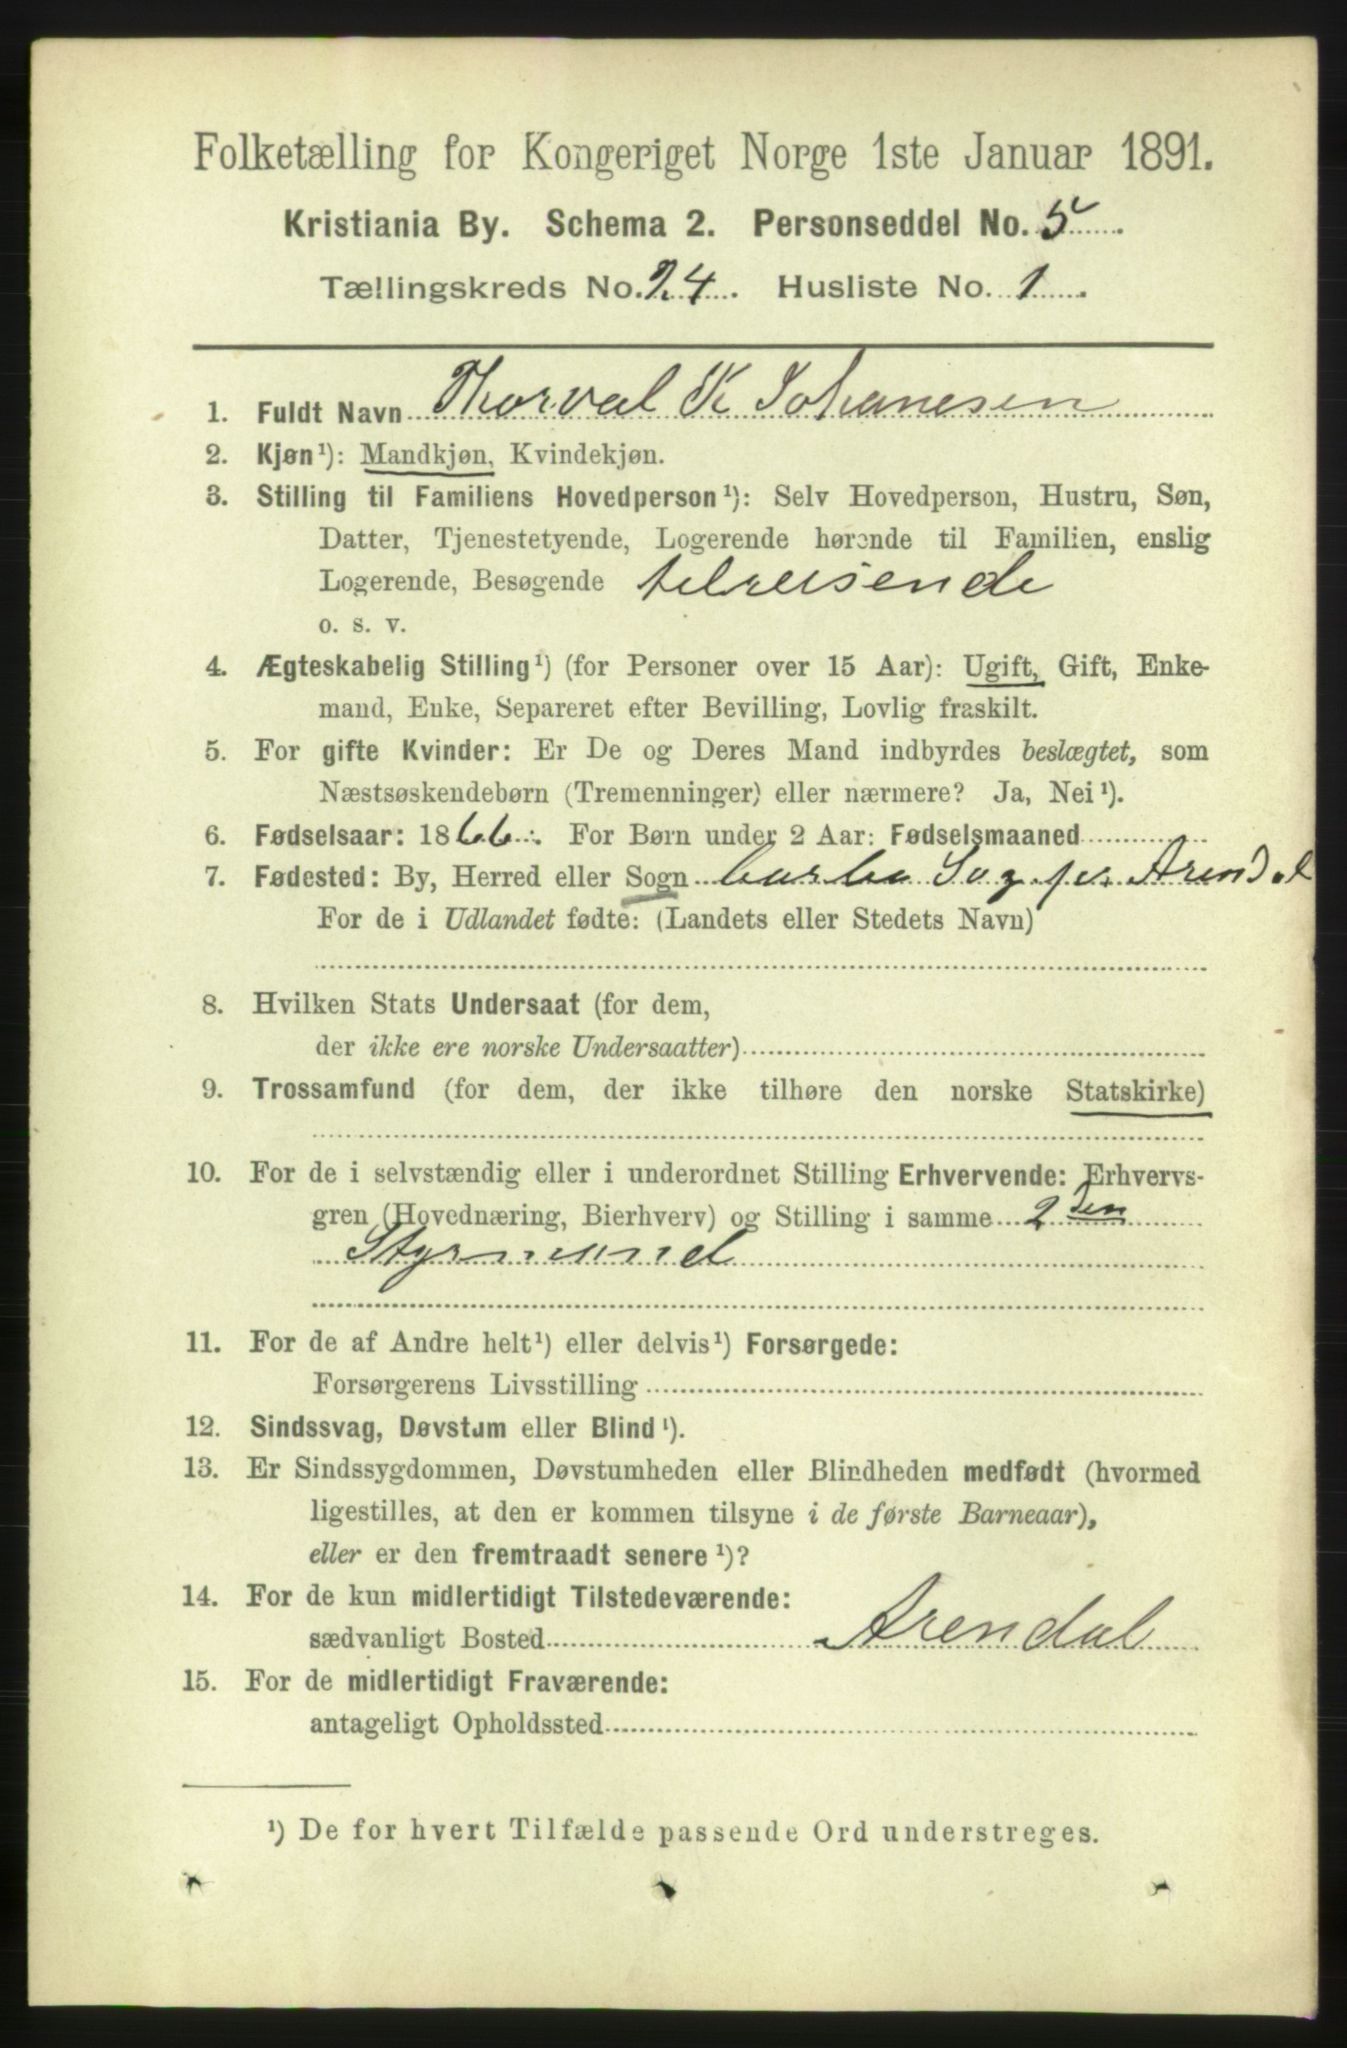 Folketælling for Kongeriget Norge 1ste Januar 1891.
Kristiania By. Schema 2. Personseddel No. 5
Tællingskreds No. 24. Husliste No. 1
1. Fuldt Navn Thorval K Johanesen
2. Kjøn¹): Mandkjøn, Kvindekjøn.
3. Stilling til Familiens Hovedperson¹): Selv Hovedperson, Hustru, Søn,
Datter, Tjenestetyende, Logerende hørende til Familien, enslig
Logerende, Besøgende tilreisende
o. s. v.
4. Ægteskabelig Stilling¹) (for Personer over 15 Aar): Ugift, Gift, Enke-
mand, Enke, Separeret efter Bevilling, Lovlig fraskilt.
5. For gifte Kvinder: Er De og Deres Mand indbyrdes beslægtet, som
Næstsøskendebørn (Tremenninger) eller nærmere? Ja, Nei¹).
6. Fødselsaar: 1866. For Børn under 2 Aar: Fødselsmaaned
7. Fødested: By, Herred eller Sogn barbo Sog pr Arendal
For de i Udlandet fødte: (Landets eller Stedets Navn)
8. Hvilken Stats Undersaat (for dem,
der ikke ere norske Undersaatter)
9. Trossamfund (for dem, der ikke tilhøre den norske Statskirke)
10. For de i selvstændig eller i underordnet Stilling Erhvervende: Erhvervs-
gren (Hovednæring, Bierhverv) og Stilling i samme 2den
Styrmand
11. For de af Andre helt¹) eller delvis¹) Forsørgede:
Forsørgerens Livsstilling
12. Sindssvag, Døvstum eller Blind¹).
13. Er Sindssygdommen, Døvstumheden eller Blindheden medfødt (hvormed
ligestilles, at den er kommen tilsyne i de første Barneaar),
eller er den fremtraadt senere¹)?
14. For de kun midlertidigt Tilstedeværende:
sædvanligt Bosted Arendal
15. For de midlertidigt Fraværende:
antageligt Opholdssted
¹) De for hvert Tilfælde passende Ord understreges.